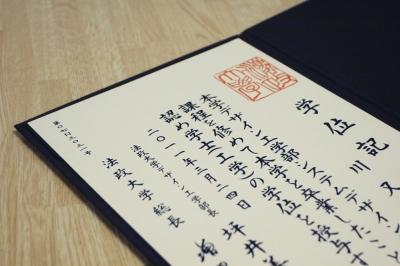 学位記
川又
本学デザイン工学部システムデザ
課程を修め本学を卒業したこと
認め学士(工学)の学位を授与す
二〇一一年三月二四日
法政大学デザイン工学部長 坪井
法政大学総長 増